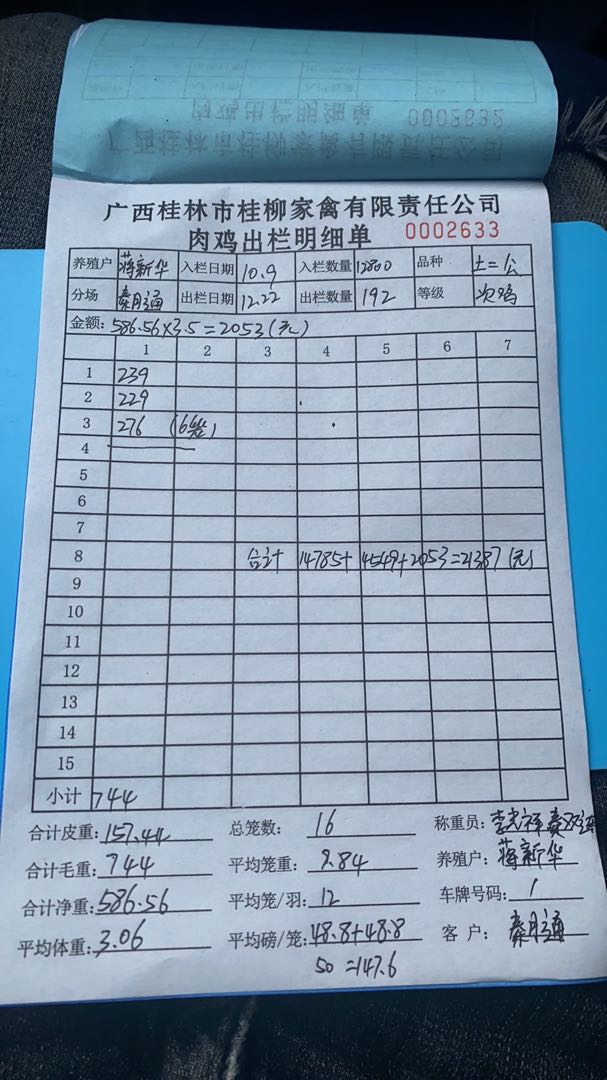 广西桂林市桂柳家禽有限责任公司
肉鸡出栏明细单 0002632
广西桂林市桂柳家禽有限责任公司
肉鸡出栏明细单 0002633
养殖户 蒋新华 入栏日期 10.9 入栏数量 12800 品种 土二公
分场 秦明通 出栏日期 12.22 出栏数量 192 等级 次鸡
金额: 586.56×3.5=2053(元)
1 2 3 4 5 6 7
1 239
2 229
3 276 (16笼)
4
5
6
7
8 合计 14785+4549+2053=21387(元)
9
10
11
12
13
14
15
小计 744
合计皮重: 157.44 总笼数: 16 称重员: 李光祥
合计毛重: 744 平均笼重: 9.84 养殖户: 蒋新华
合计净重: 586.56 平均笼/羽: 12 车牌号码: 1
平均体重: 3.06 平均磅/笼: 48.8+48.8 客户: 秦明通
50=147.6